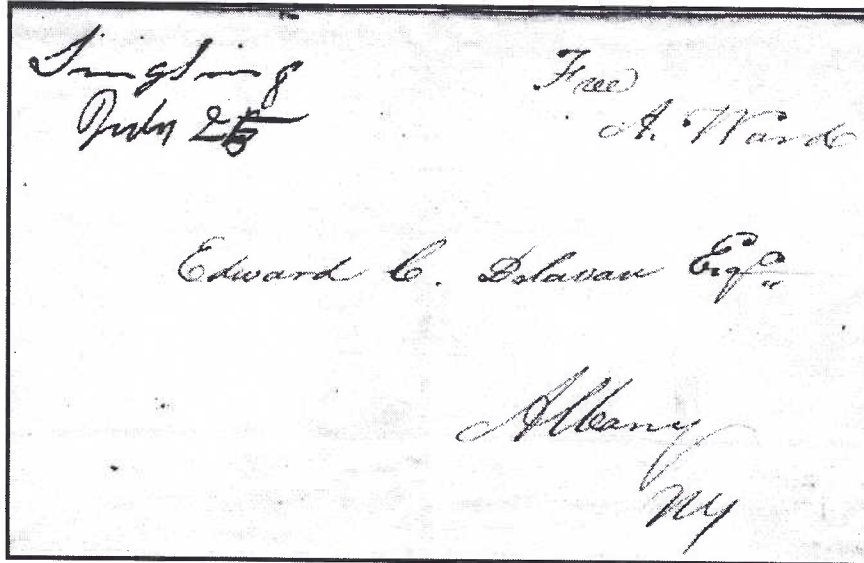 SingSing
July 25
Free
A. Ward
Edward C. Delavan Esq.
Albany
NY